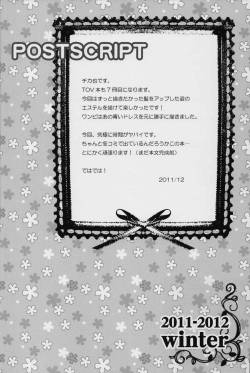 POSTSCRIPT
チカ也です。
TOV本も7冊目になります。
今回はずっと描きたかった髪をアップした姿の
エステルを描けて楽しかったです！
ワンピはあの青いドレスを元に勝手に描きました。
今回、究極に時間がヤバイです。
ちゃんと冬コミで出ているんだろうかこの本…
とにかく頑張ります！（まだ本文完成前）
2011/12
ではでは！
2011-2012
winter